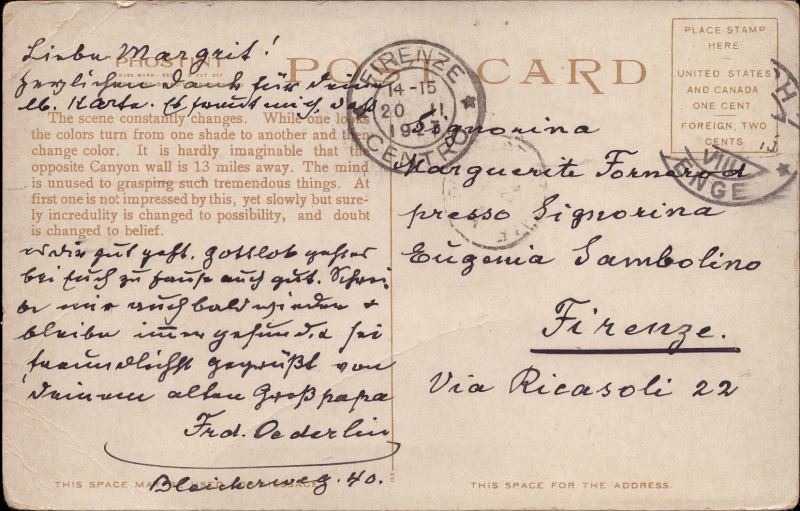 Liebe Margrit!
PHOSTINT
TRADE MARK
herzlichen Dank für deine
lb. Karte. Es freut mich, daß
The scene constantly changes. While one looks
the colors turn from one shade to another and then
change color. It is hardly imaginable that the
opposite Canyon wall is 13 miles away. The mind
is unused to grasping such tremendous things. At
first one is not impressed by this, yet slowly but sure-
ly incredulity is changed to possibility, and doubt
is changed to belief.
es dir gut geht. Gottlob geht es
bei Euch zu Hause auch gut. Schrei
be mir auch bald wieder &
bleibe immer gesund & sei
freundlichst gegrüßt von
deinem alten Großpapa
Frd. Oederlin
Bleicherweg. 40.
POST CARD
FIRENZE
14-15
20 II
CENTRO
PLACE STAMP
HERE
UNITED STATES
AND CANADA
ONE CENT
FOREIGN, TWO
CENTS
15
VIII
ENGE
Signorina
Marguerite Fornerod
presso Signorina
Eugenia Sambolino
Firenze.
Via Ricasoli 22
THIS SPACE FOR THE ADDRESS.